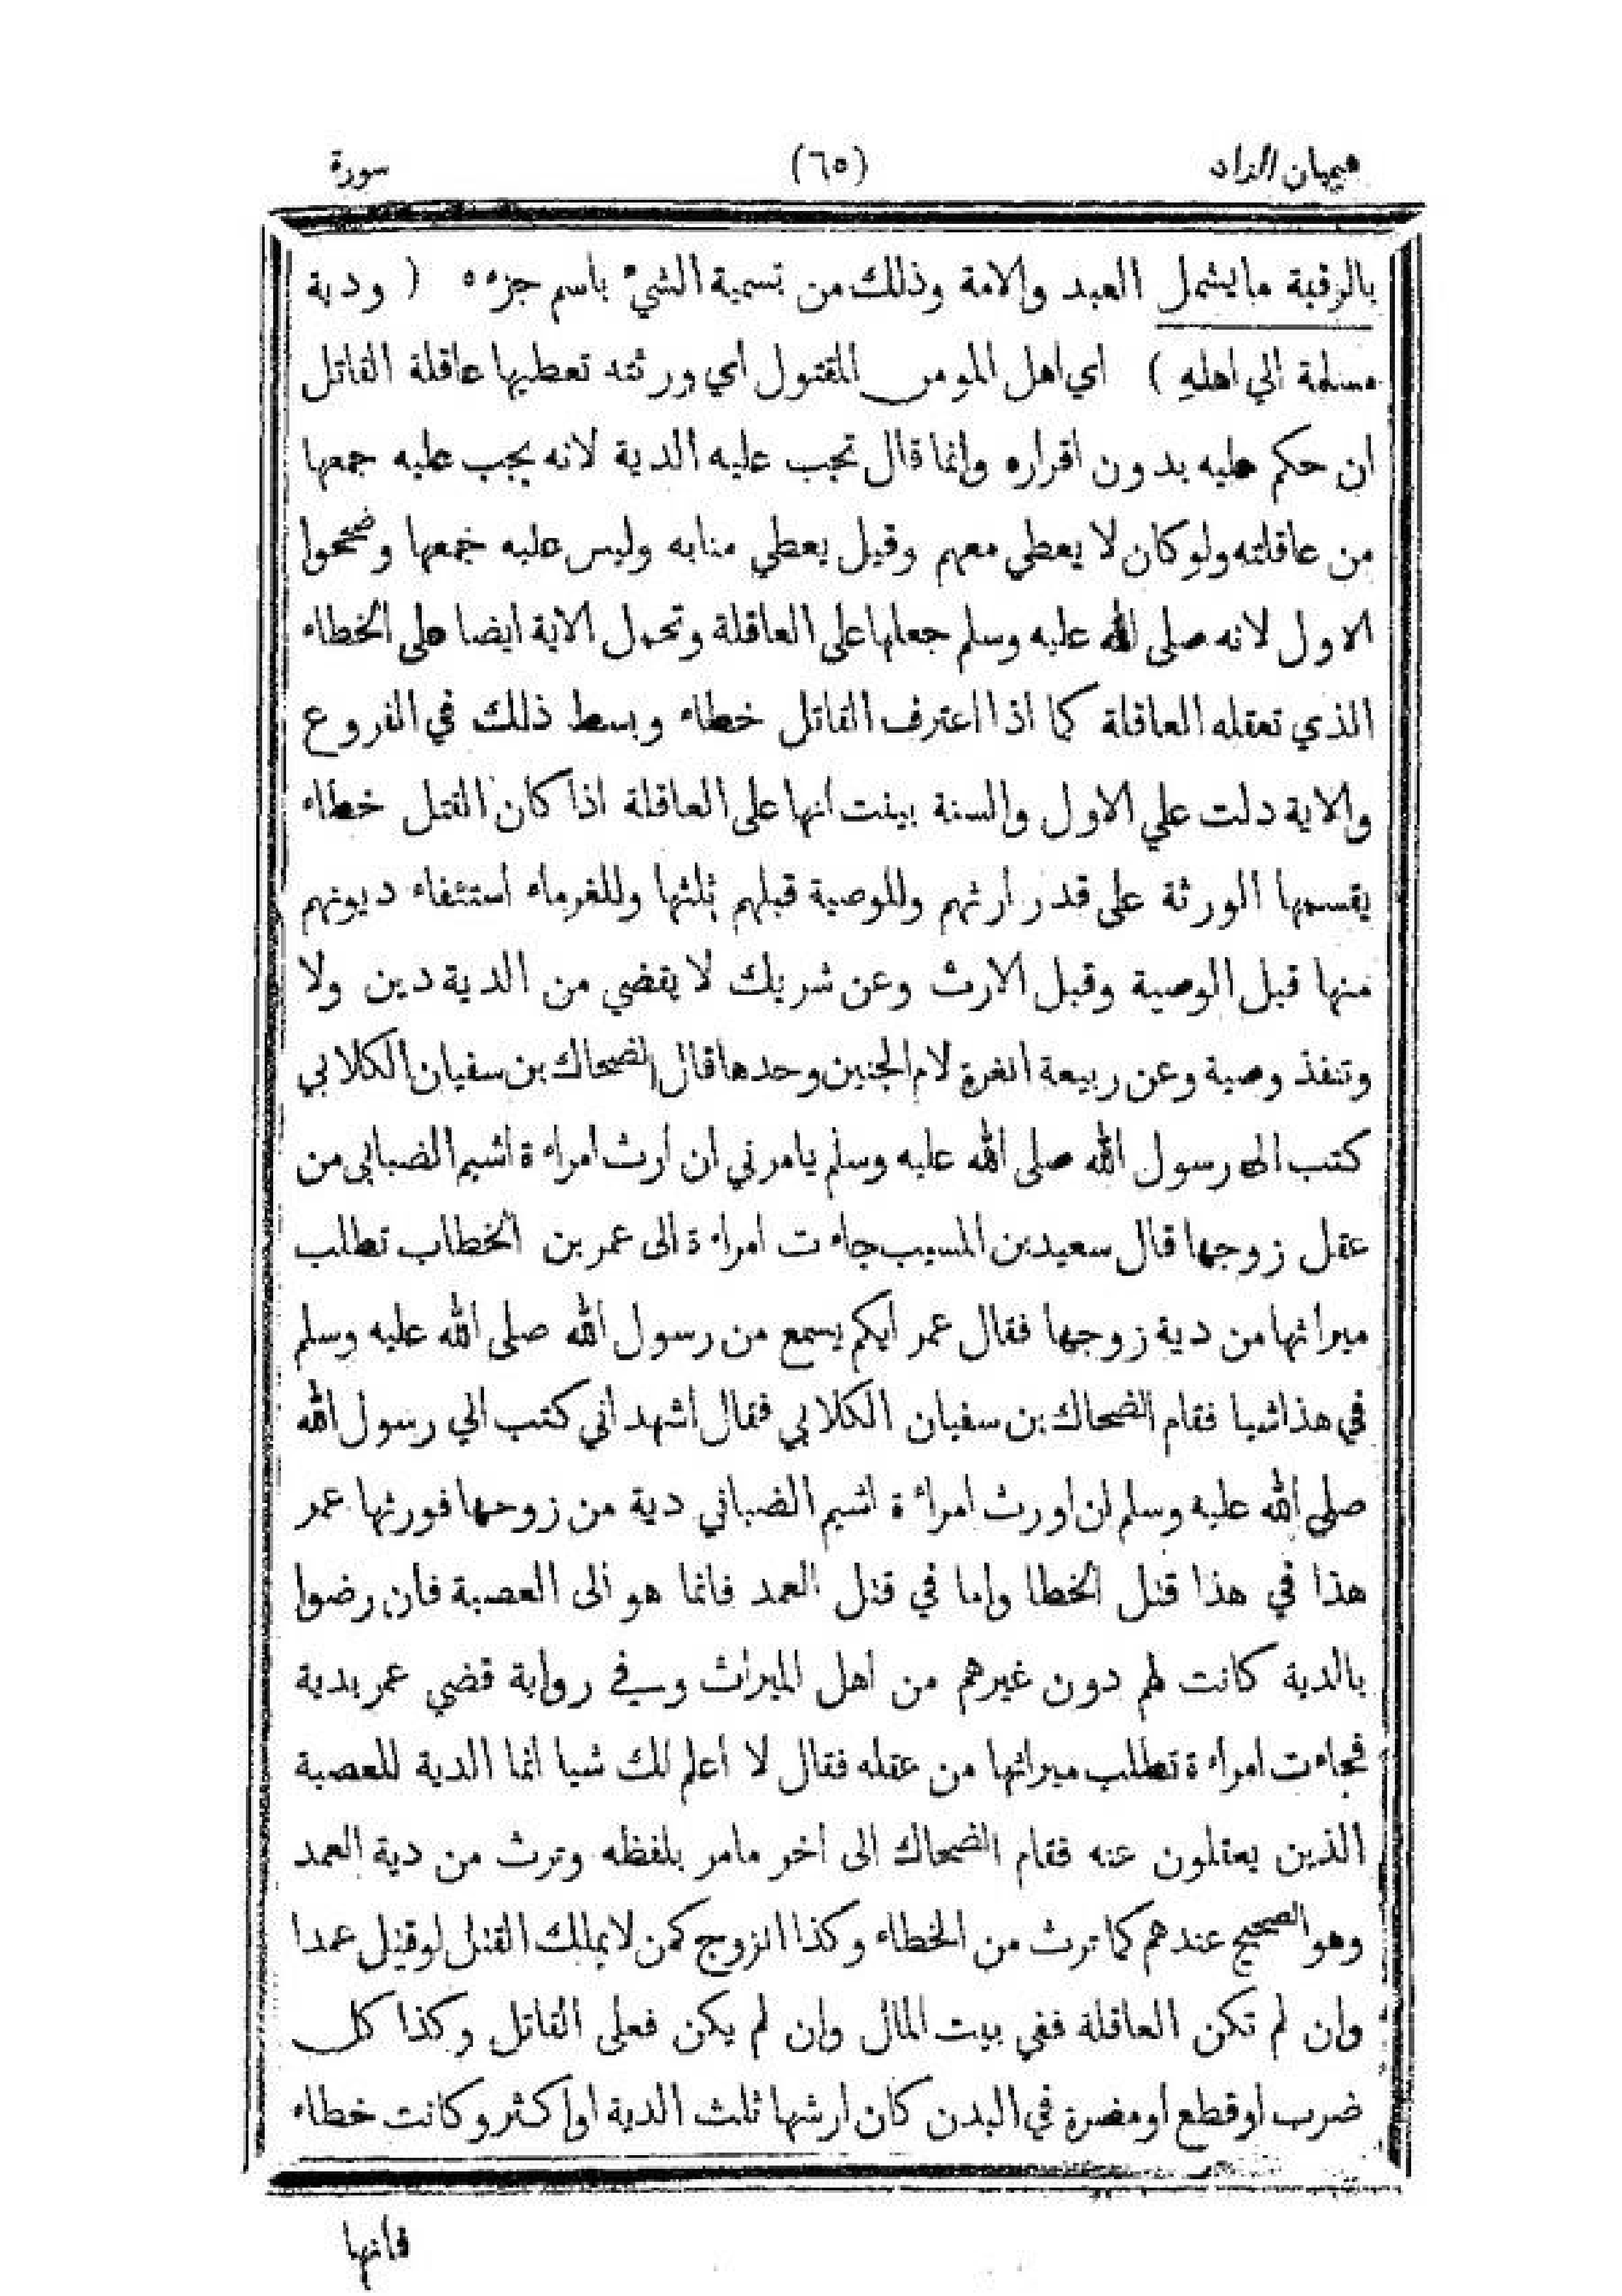 هيميان الزاد (٦٥) سورة
بالرقبة مايشمل العبد والامة وذلك من تسمية الشيء باسم جزءه ( ودية
مسلمة الي اهلهِ ) اي اهل المومن المقتول اي ورثته تعطيها عاقلة القاتل
ان حكم عليه بدون اقراره وانما قال تجب عليه الدية لانه يجب عليه جمعها
من عاقلته ولو كان لا يعطي معهم وقيل يعطي منابه وليس عليه جمعها وصححوا
الاول لانه صلى الله عليه وسلم جعلها على العاقلة وتحمل الاية ايضا على الخطاء
الذي تعقله العاقلة كما اذا اعترف القاتل خطاء وبسط ذلك في الفروع
والاية دلت علي الاول والسنة بينت انها على العاقلة اذا كان القتل خطاء
يقسمها الورثة على قدر ارثهم وللوصية قبلهم ثلثها وللغرماء استئفاء ديونهم
منها قبل الوصية وقبل الارث وعن شريك لا يقضي من الدية دين ولا
وتنفذ وصية وعن ربيعة الغرة لام الجنين وحدها قال الضحاك بن سفيان الكلابي
كتب الى رسول الله صلى الله عليه وسلم يامرني ان ارث امراءة اشيم الضبابي من
عقل زوجها قال سعيد بن المسيب جاءت امراءة الى عمر بن الخطاب تطلب
ميراثها من دية زوجها فقال عمر ايكم يسمع من رسول الله صلى الله عليه وسلم
في هذا شيا فقام الضحاك بن سفيان الكلابي فقال اشهد اني كتب الي رسول الله
صلي الله عليه وسلم ان اورث امرأة اشيم الضباني دية من زوجها فورثها عمر
هذا في هذا قتل الخطا واما في قتل العمد فانما هو الى العصبة فان رضوا
بالدية كانت لهم دون غيرهم من اهل الميراث وسيف رواية قضي عمر بدية
فجاءت امراءة تطلب ميراثها من عقله فقال لا اعلم لك شيا انما الدية للعصبة
الذين يعقلون عنه فقام الضحاك الى اخر مامر بلفظه وترث من دية العمد
وهو الصحيح عندهم كما ترث من الخطاء وكذا الزوج كمن لايملك القتل لو قتل عمدا
وان لم تكن العاقلة ففي بيت المال وان لم يكن فعلى القاتل وكذا كل
ضرب او قطع او مضرة في البدن كان ارشها ثلث الدية او اكثر وكانت خطاء
فانها